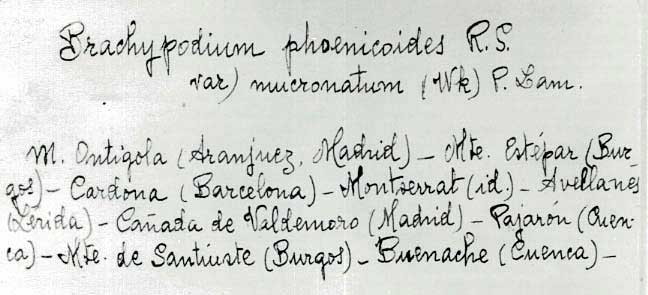 Brachypodium phoenicoides R.S.
var) mucronatum (Wk) P. Lam.
M. Ontigola (Aranjuez, Madrid) – Mte. Estépar (Bur-
gos) – Cardona (Barcelona) – Montserrat (id.) – Avellanes
(Lérida) – Cañada de Valdemoro (Madrid) – Pajarón (Cuen-
ca) – Mte. de Santiuste (Burgos) – Buenache (Cuenca) –